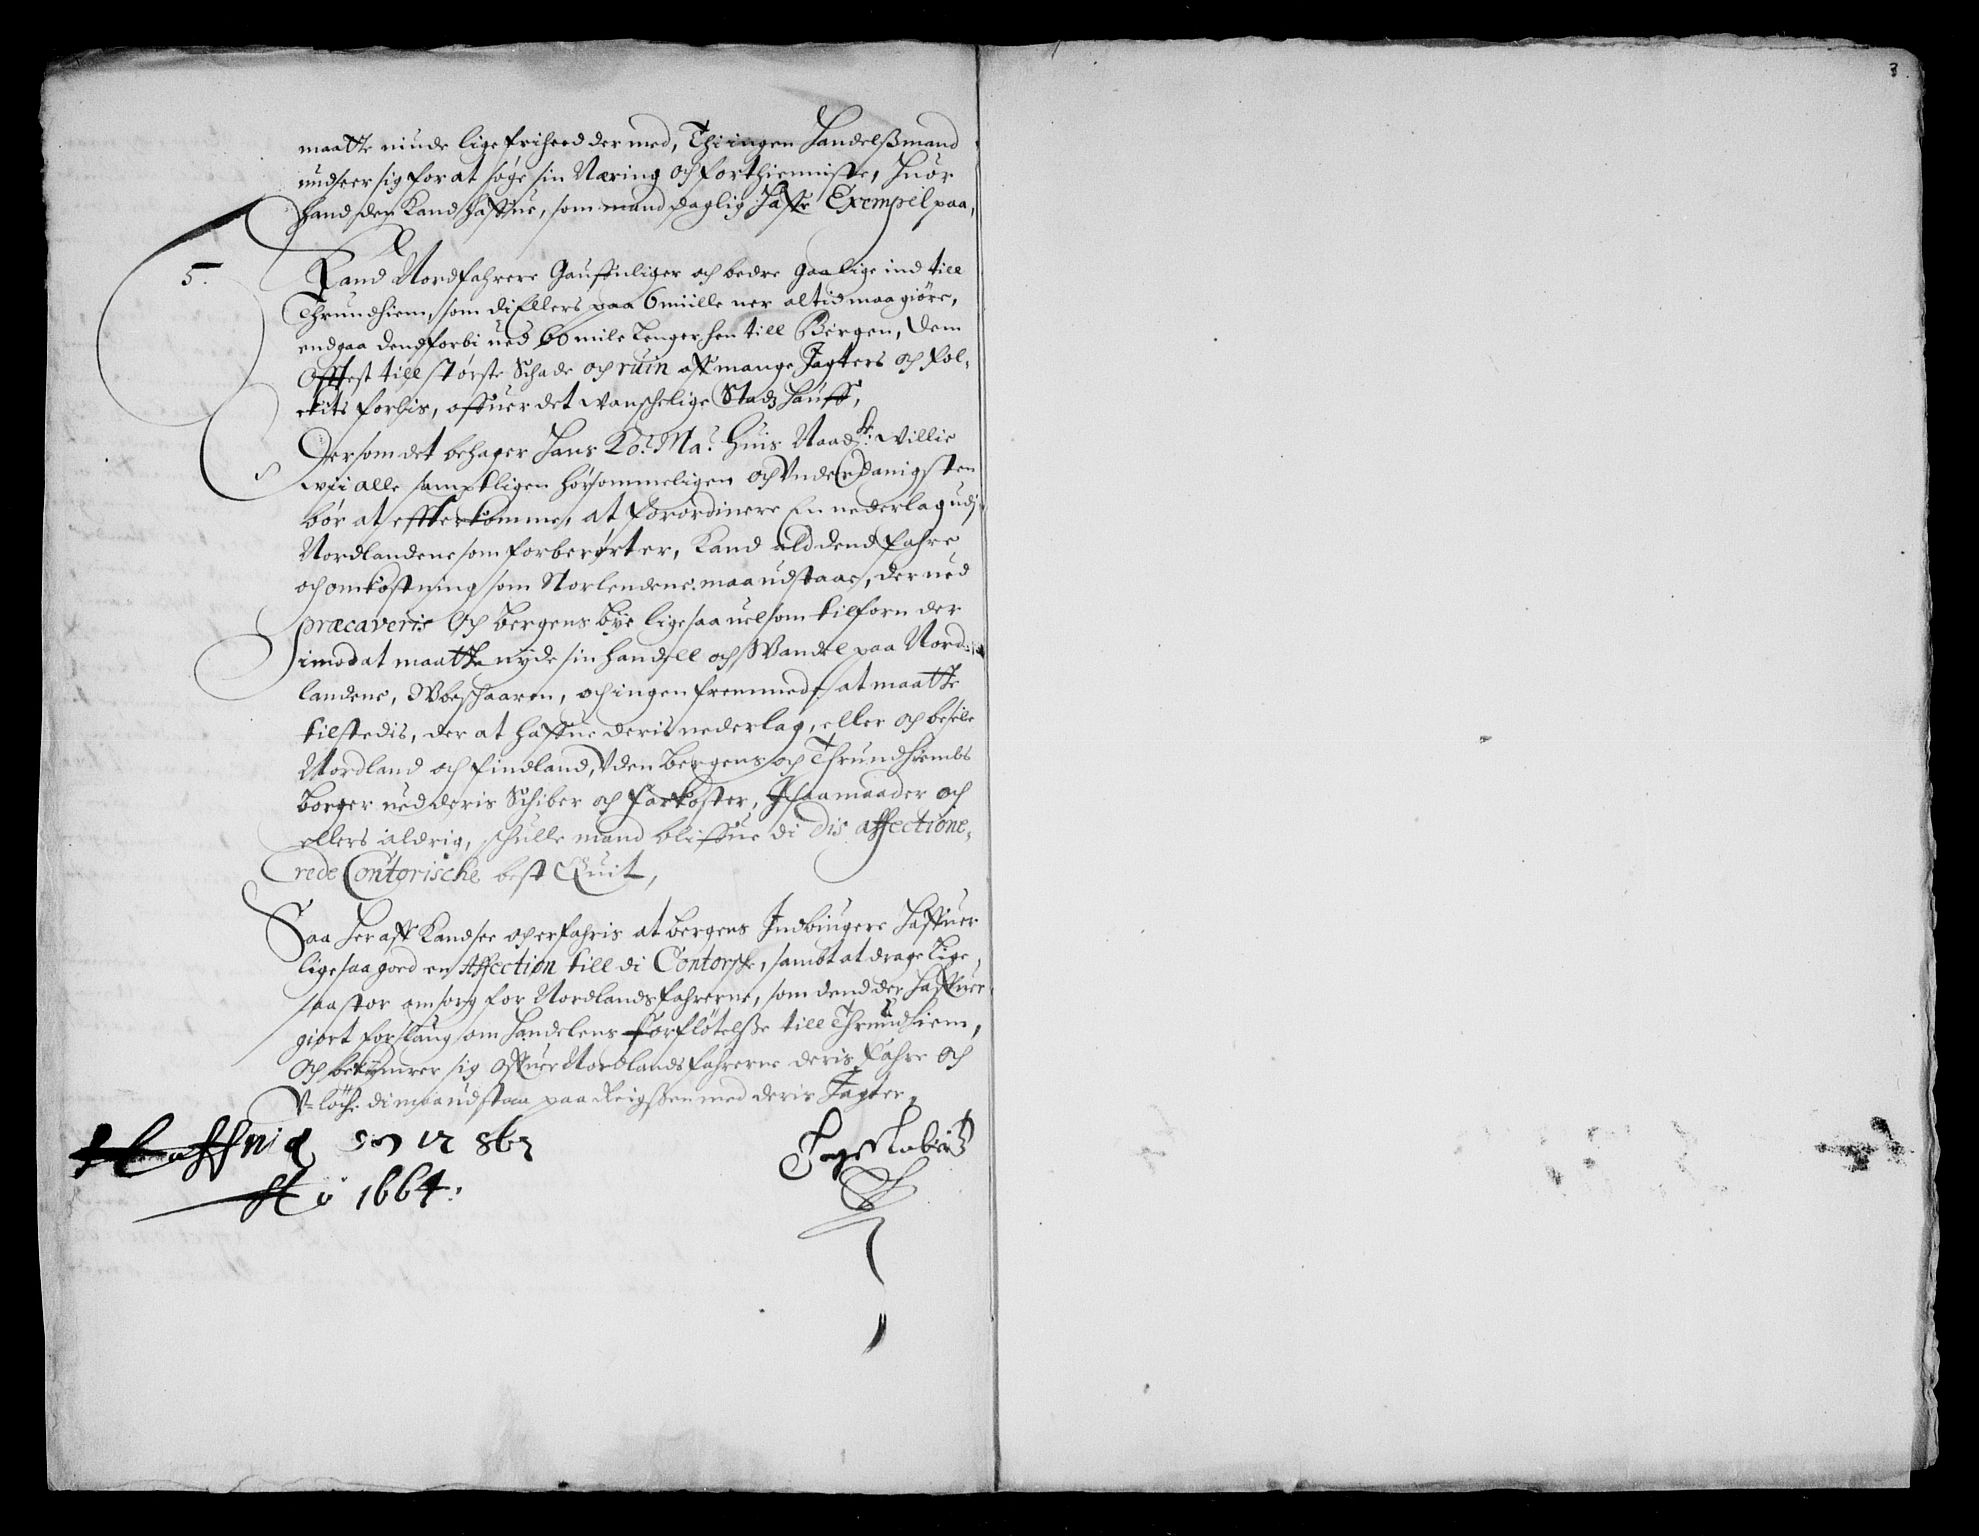 3
maatte niude lige friheed der med, Thi ingen Handelßmand
undseer sig for at søge sin Næring och forthienniste, Huor
hand den Kand haffue, som mand daglig Haffr Exempel paa,
5. Kand Nordfahrere Gauffnliger och bedre gaa lige ind till
Thrundhiem, som di Ellers paa 6 miille ner altid maa giöre,
end gaa dend forbi ued 60 mile Lenger hen till Bergen, dem
Offtest till störste Schade och ruin aff mange Jagters och fol-
ckits forlis, offuer det wanschelige Stadz Hauff,
Dersom det behager Hans Ko: Ma: huis Naadst: willie
wii alle samptligen hörsommeligen och Underdanigsten
bör at effterkomme, at forordinere En nederlag udj
Nordlandene som forberørt er, Kand ald dend fahre
och omkostning som Norlendene maa udstaae, der ued
præcaveris Och Bergens bye lige saa uel som tilforn der
imod at maatte nyde sin handell och Wandel paa Nord-
landene, Wbeschaaren, och ingen fremmede at maatte
tilstedis, der at haffue deris nederlag, eller och beseile
Nordland och findland, Uden Bergens och Thrundhiembs
borger ued deris Schiber och farkoster, I saa maader och
ellers aldrig, schulle mand bliffue di dis affectione-
rede Contorische best Quit,
Saa her aff Kand see och erfahris at bergens Indbiugere haffuer
lige saa goed en Affection till di Contorsche, sambt at drage lige
saa stor omsorg for Nordlandsfahrerne, som dend der haffuer
giort forslaug om Handelens forflötelße till Thrundhiem,
Och bekymrer sig offuer Nordlandsfahrerne deris fahre och
U-löche di maa udstaa paa Reigßen med deris Jagter,
Haffnia 17
Ao 1664: